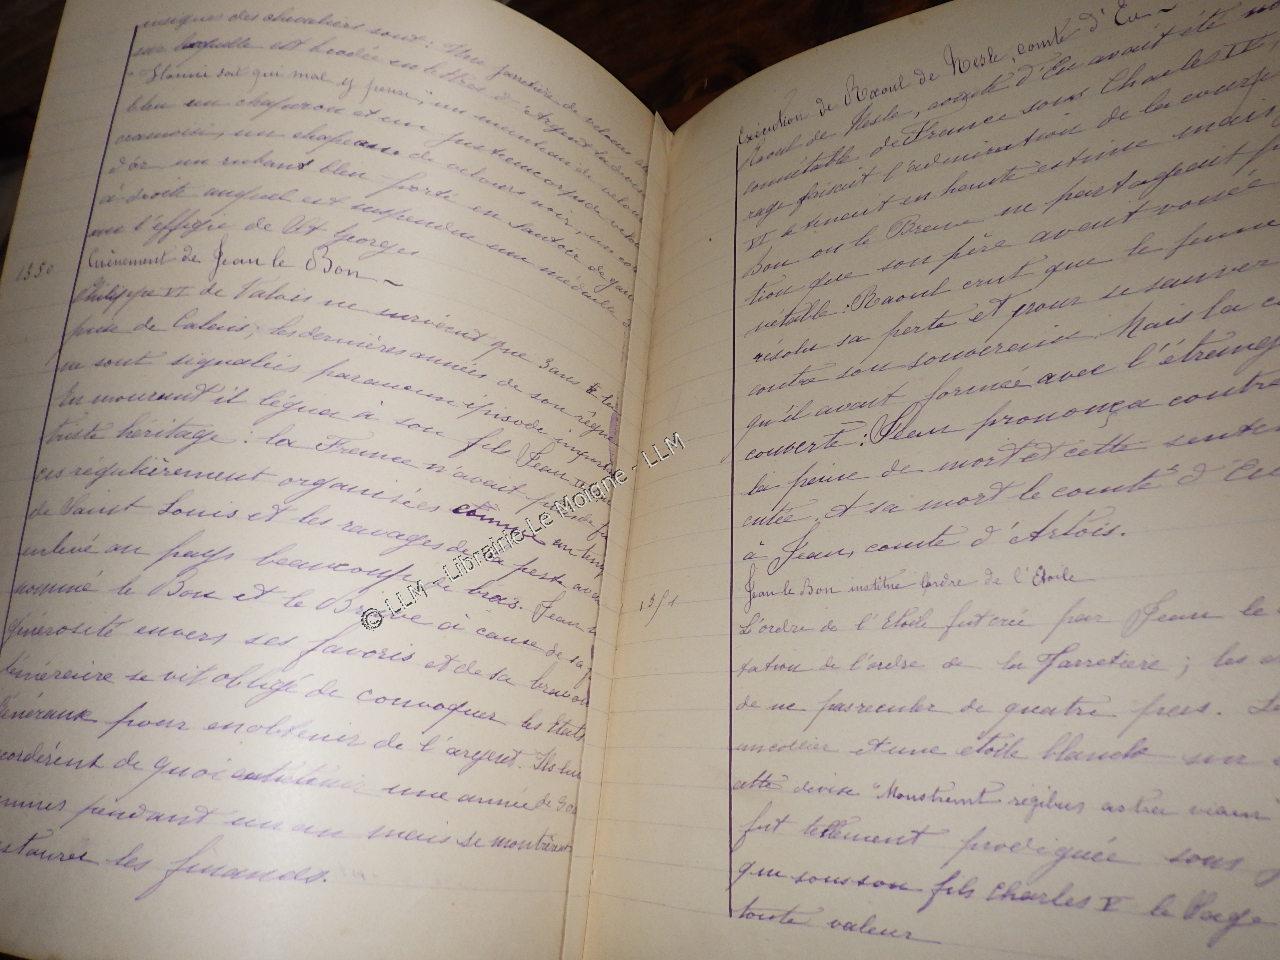 insignes des chevaliers sont: Une jarretière de velours
sur laquelle est brodée en lettres d'Argent la devise
"Honni soit qui mal y pense", un manteau de velours
bleu un chaperon et un justaucorps de velours
cramoisi, un chapeau de velours noir, un
d'or un ruban bleu porté en sautoir de
à droite auquel est suspendu une médaille
avec l'effigie de St Georges
1350
Evènement de Jean le Bon
Philippe VI de Valois ne survécut que 3 ans à la
prise de Calais; les dernières années de son règne
ne sont signalées par aucun épisode important
En mourant il légua à son fils Jean un
triste héritage: la France n'avait plus de
régulièrement organisées comme au temps
de Saint Louis et les ravages de la peste
enlevé au pays beaucoup de bras. Jean
nommé le Bon et le Brave à cause de sa
générosité envers ses favoris et de sa bravoure
téméraire se vit obligé de convoquer les Etats
Généraux pour en obtenir de l'argent. Ils lui
accordèrent de quoi entretenir une année de
pendant un an mais se montrèrent
les finances.
Exécution de Raoul de Nesle, comte d'Eu
Raoul de Nesle, comte d'Eu avait été
connétable de France sous Charles IV,
rage faisait l'admiration de la cour
VI le tenait en haute estime mais
bon ou le Brave ne partageait
tion que son père avait vouée
nétable: Raoul crut que le
résolu sa perte et pour se sauver
contre son souverain. Mais la
qu'il avait formée avec l'étranger
couverte: Jean prononça contre
la peine de mort et cette sentence
cutée, et sa mort le comté d'Eu
à Jean, comte d'Artois.
1351
Jean le Bon institue l'ordre de l'Etoile
L'ordre de l'Etoile fut créé par Jean le
tation de l'ordre de la Jarretière; les
de ne pas reculer de quatre pas.
un collier et une étoile blanche sur
cette devise "Monstrant regibus astra viam
fut tellement prodiguée sous
que sous son fils Charles V le Sage
toute valeur
© LLM - Librairie Le Moigne - LLM